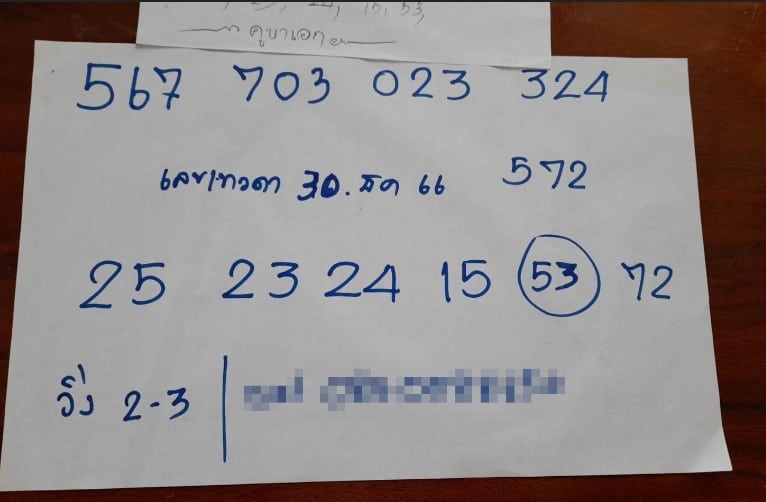 24, 15, 53,
คูบาเอก
567 703 023 324
เลขเทวดา 30. ธค 66 572
25 23 24 15 53 72
วิ่ง 2-3